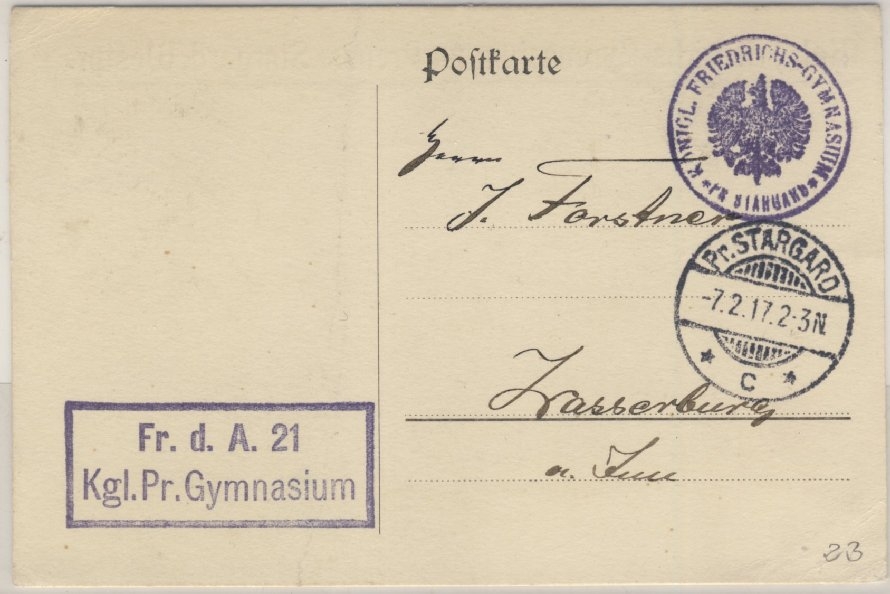 Postkarte
KÖNIGL. FRIEDRICHS-GYMNASIUM
* PR. STARGARD *
Herrn
J. Forstner
Pr. STARGARD
-7.2.17.2-3N.
* C *
Wasserburg
a. Inn
Fr. d. A. 21
Kgl.Pr.Gymnasium
23